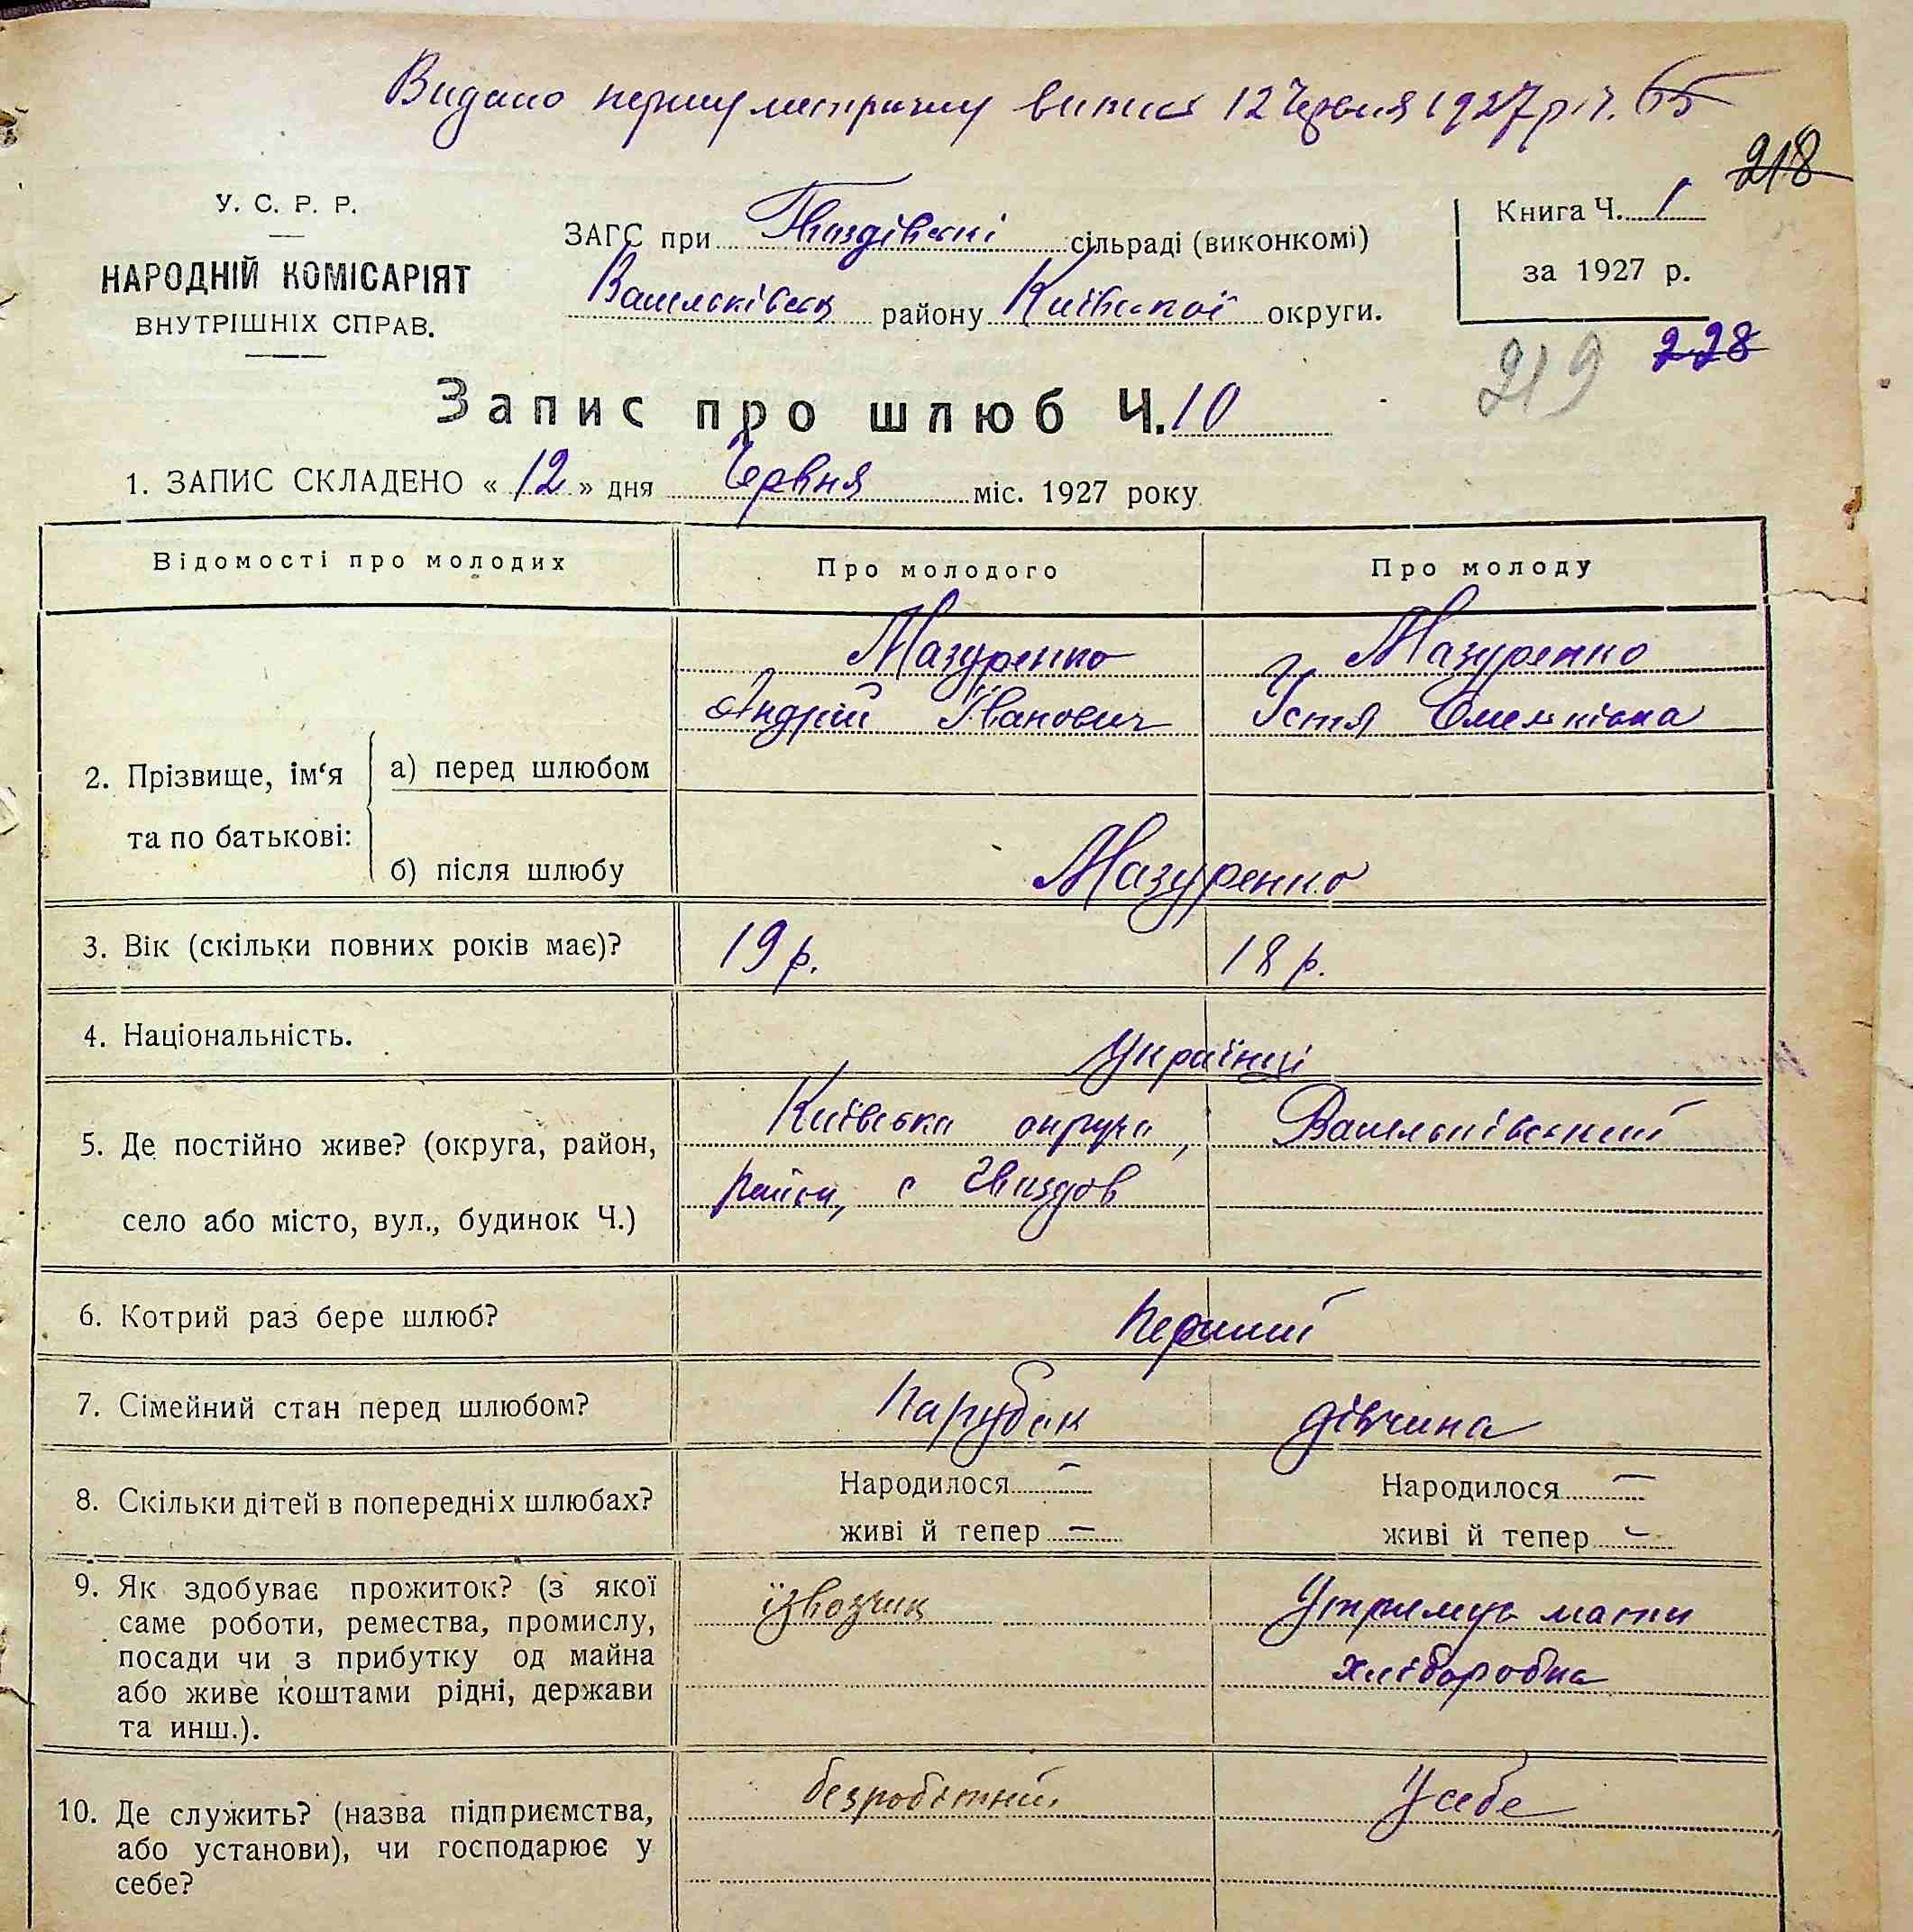 Видано першу метричну випись 12 Червня 1927 р. ч. 65
218
У. С. Р. Р.
НАРОДНІЙ КОМІСАРІЯТ
ВНУТРІШНІХ СПРАВ.
ЗАГС при Гвиздівські сільраді (виконкомі)
Васильківськ району Київської округи.
Книга Ч. 1
за 1927 р.
228
219
Запис про шлюб Ч. 10
1. ЗАПИС СКЛАДЕНО « 12 » дня Червня міс. 1927 року
Відомості про молодих Про молодого Про молоду
Мазуренко Мазуренко
Андрій Іванович Устя Омельківна
2. Прізвище, ім'я та по батькові:
а) перед шлюбом
б) після шлюбу Мазуренко
3. Вік (скільки повних років має)? 19 р. 18 р.
4. Національність. Українці
5. Де постійно живе? (округа, район, Київська округа, Васильківський
село або місто, вул., будинок Ч.) район, с Гвиздов
6. Котрий раз бере шлюб? Перший
7. Сімейний стан перед шлюбом? Парубок дівчина
8. Скільки дітей в попередніх шлюбах? Народилося — Народилося —
живі й тепер — живі й тепер —
9. Як здобуває прожиток? (з якої їзвозчик Утримує мати
саме роботи, ремества, промислу, хліборобка
посади чи з прибутку од майна
або живе коштами рідні, держави
та инш.).
10. Де служить? (назва підприємства, безробітний У себе
або установи), чи господарює у
себе?